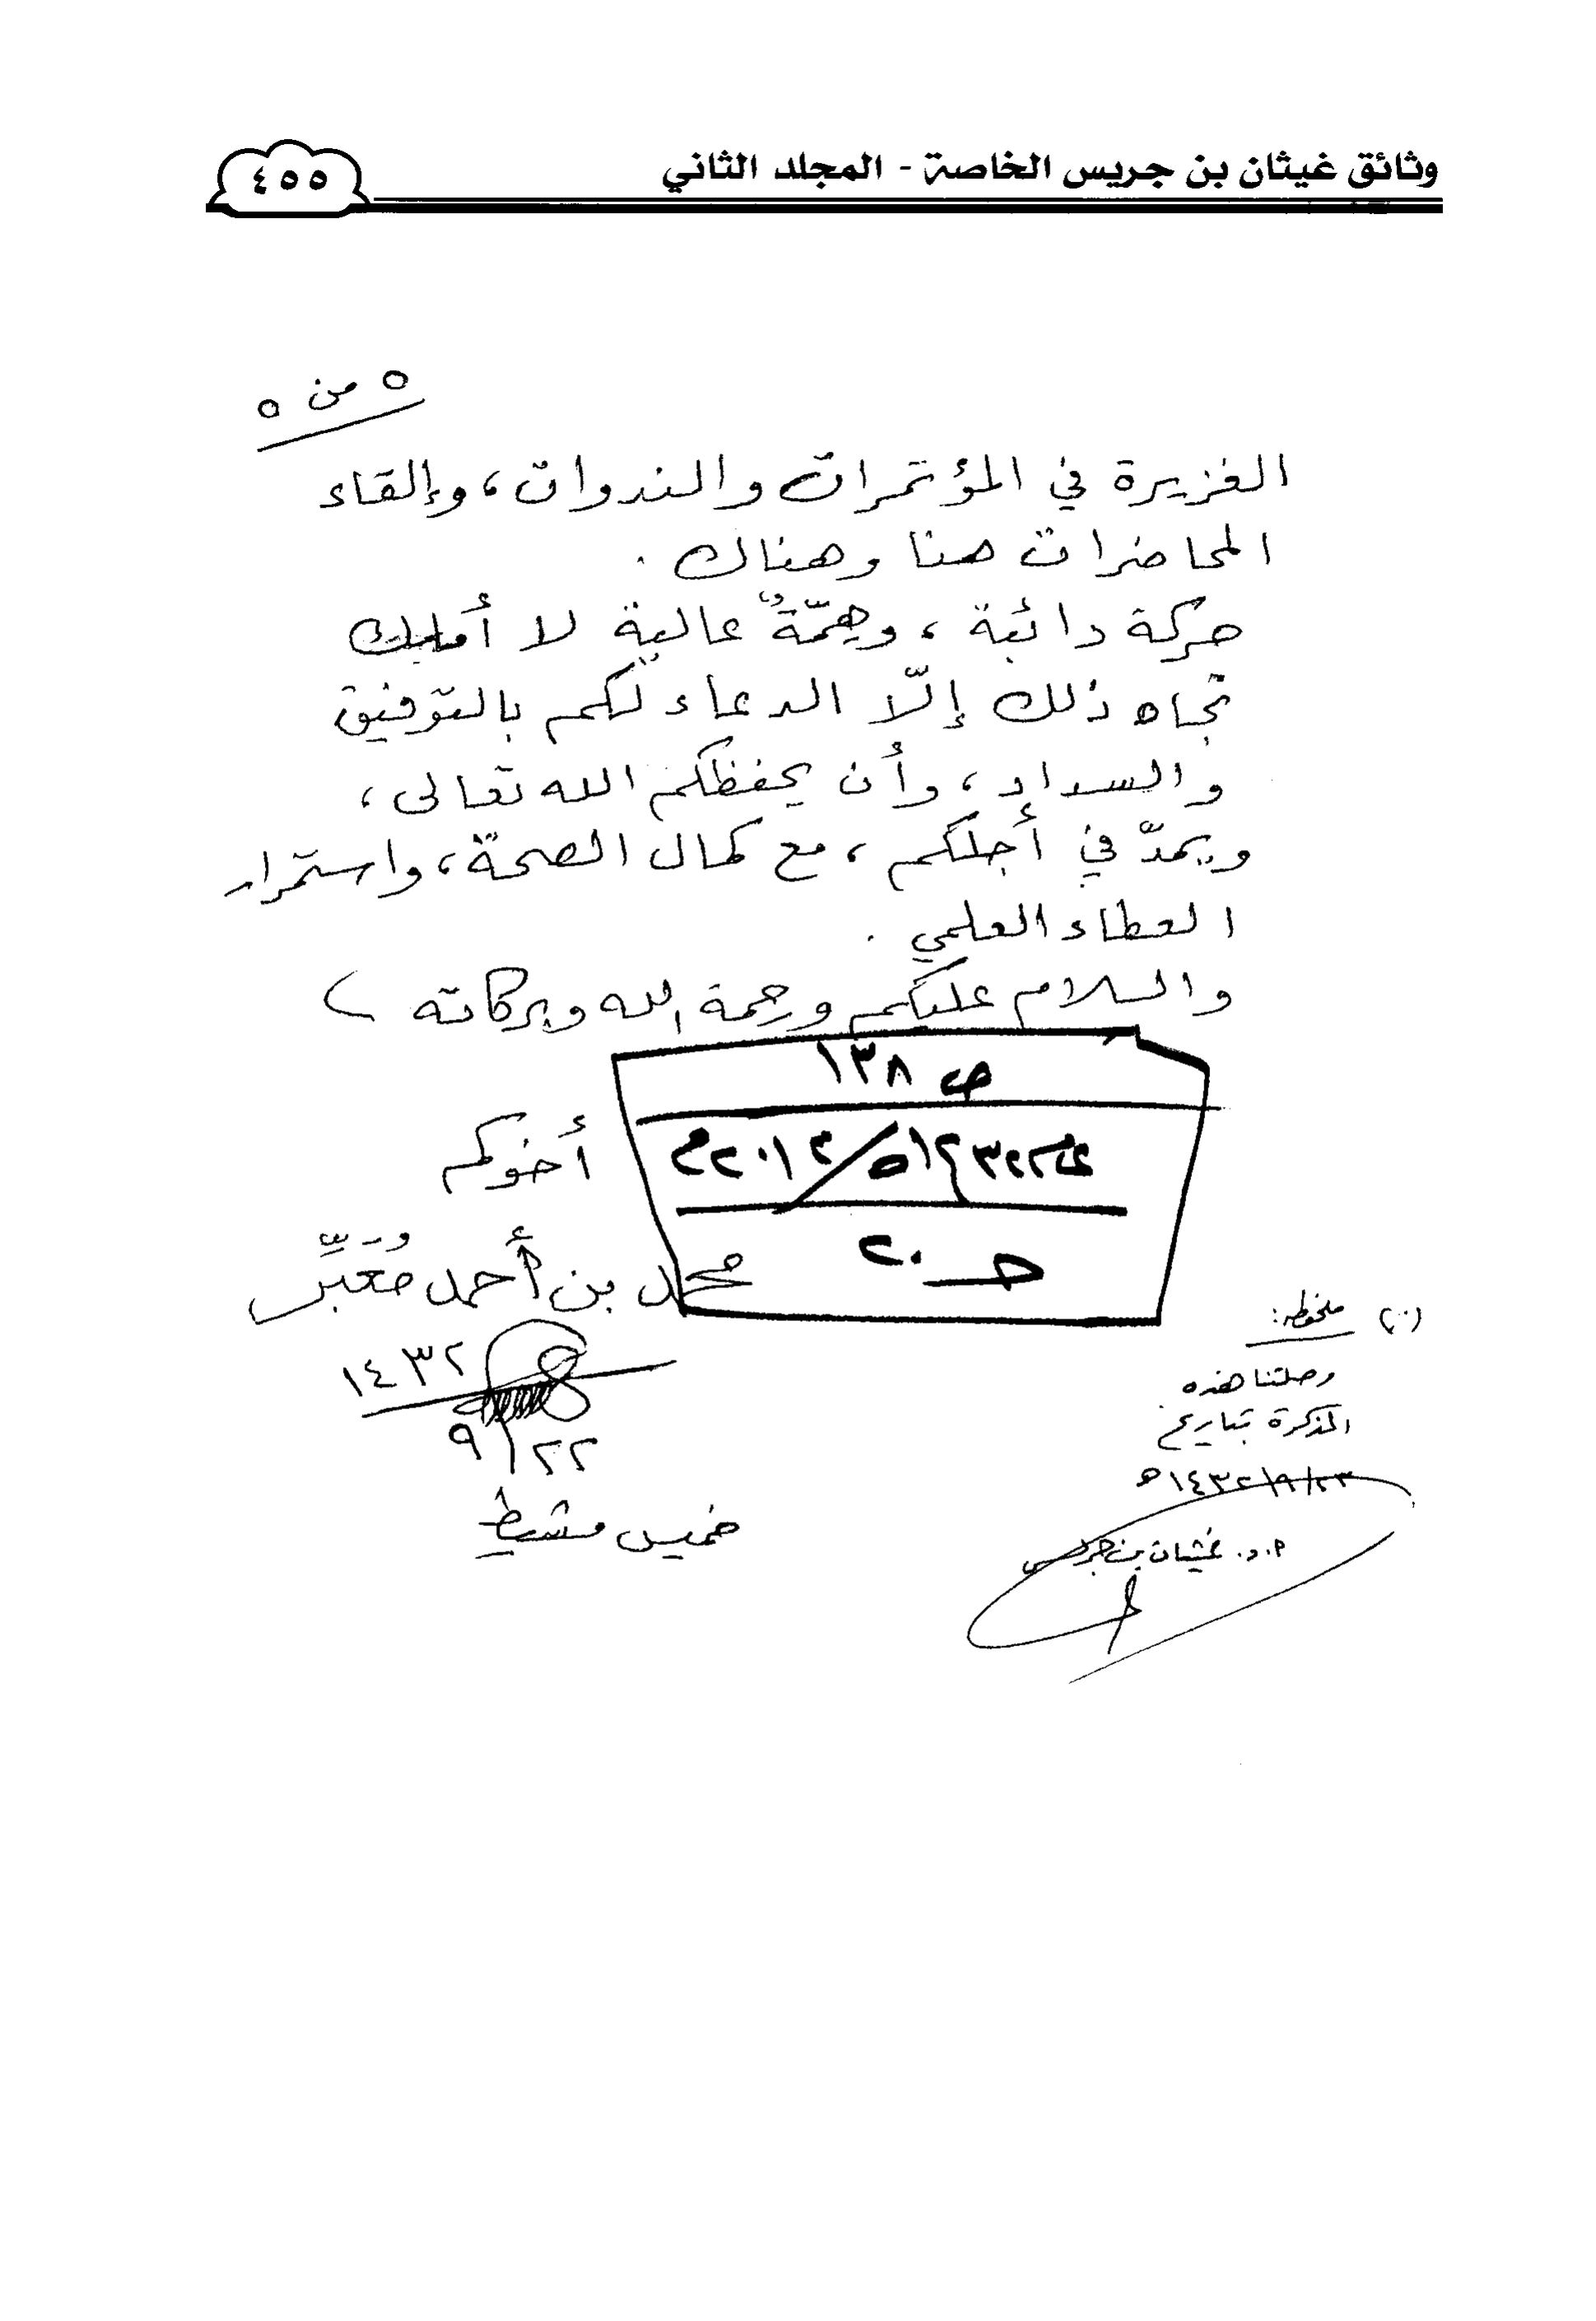 وثائق غيثان بن جريس الخاصة - المجلد الثاني
٤٥٥
٥ من ٥
الغزيرة في المؤتمرات والندوات، وإلقاء
المحاضرات هنا وهناك .
حركة دائبة ، وهِمّةٌ عالية لا أملك
تجاه ذلك إلّا الدعاء لكم بالتوفيق
والسداد ، وأن يحفظكم الله تعالى ،
ويمدّ في أجلكم ، مع كمال الصحة ، واستمرار
العطاء العلمي .
والسلام عليكم ورحمة الله وبركاته
ص ١٣٨
٢٠١٢م
حـ ٢٠
أخوكم
محمد بن أحمد مُعَبِّر
١٤٣٢
٩/٢٢
خميس مشيط
ملحوظة :
وصلتنا هذه
المذكرة بتاريخ
١٤٣٢/٩/٢٣هـ
أ.د. غيثان بن جريس